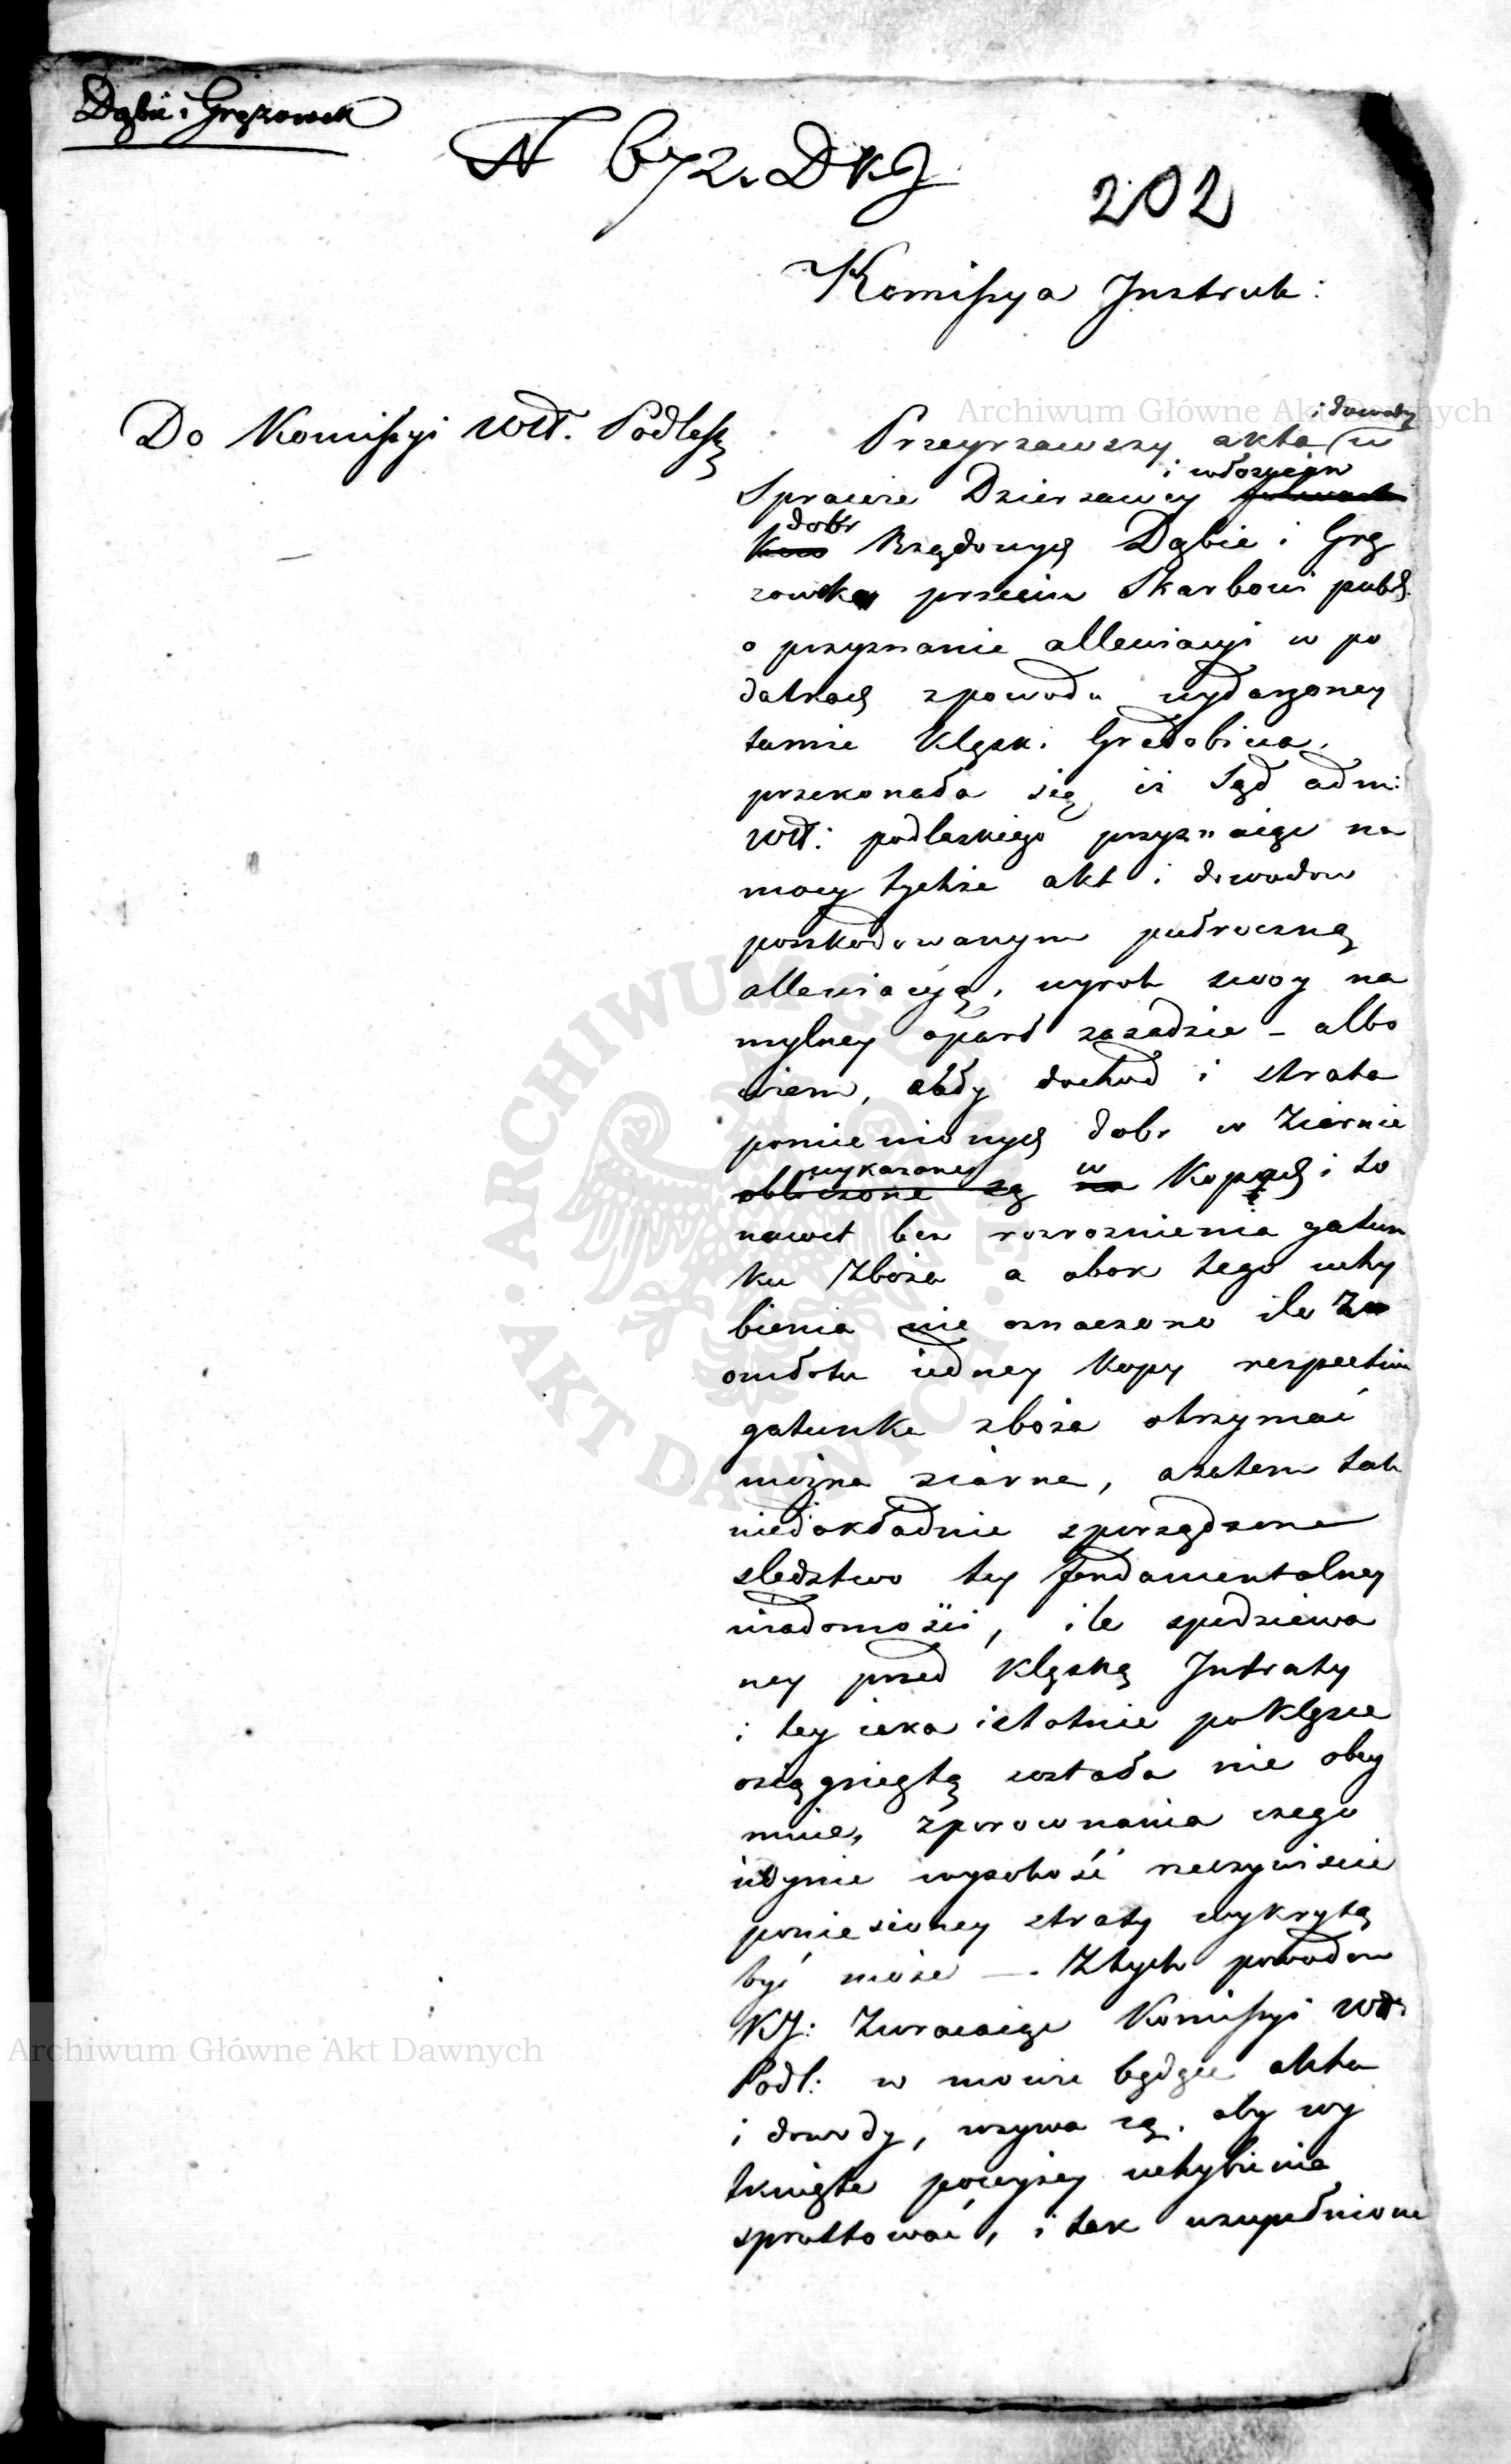 Dąbie i Gręzowek
N 672. DKJ
202
Komissya Instruk:
Do Komissyi Wdt. Podlesk
Przeyrzawszy akta i dowody w
Sprawie Dzierzawcy i włoscian
dobr Rządowych Dąbie i Grę
zowka przeciw Skarbowi publ.
o przyznanie allewiacyi w po
datkach zpowodu wydarzoney
tamże klęski Gradobicia,
przekonała się iż Sąd adm:
Wdt: podlaskiego przyznaiąc na
mocy tychże akt i dowodow
poszkodowanym pułroczną
allewiacyą, wyrok swoy na
mylney oparł zasadzie – albo
wiem, ażdy dochod i strata
pomienionych dobr w Ziarnie
wykazane w Kopach i to
nawet bez rozroznienia gatun
ku Zboża a obok tego uchy
bienia nie oznaczono ile z
omłotu iedney Kopy respective
gatunku zboża otrzymać
można ziarna, azatem tak
niedokładnie sporządzone
sledztwo tey fundamentalney
wiadomości, ile spodziewa
ney przed klęską Intraty
i tey iaka istotnie po klęsce
osiągniętą została nie obey
muie, zporownania czego
iedynie wysokość rzeczywiscie
poniesioney straty wykrytą
być może —. Ztych powodow
KJ: Zwracaiąc Komissyi Wdt.
Podl: w mowie będące akta
i dowody, wzywa ią, aby wy
tknięte powyżey uchybienia
sprostować, i tak uzupełnione
Archiwum Główne Akt Dawnych
Archiwum Główne Akt Dawnych
ARCHIWUM GŁÓWNE AKT DAWNYCH